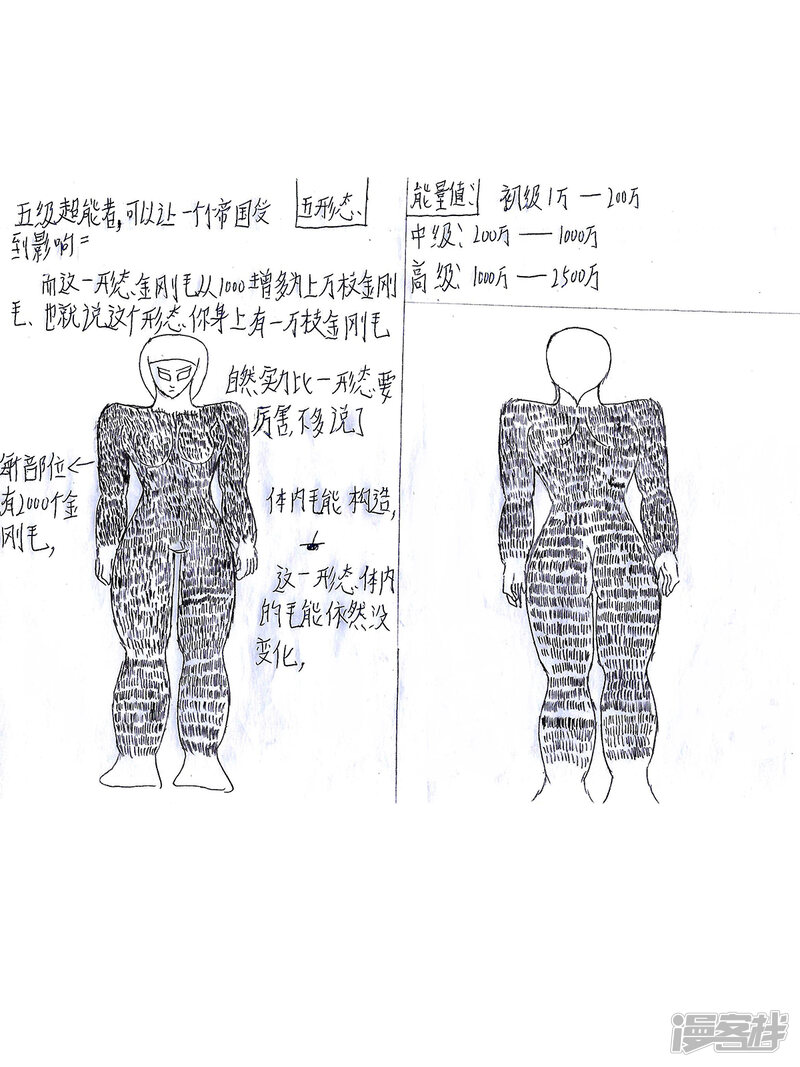 五级超能者,可以让一个帝国受
到影响=
五形态、
而这一形态、金刚毛从1000增多为上万枝金刚
毛、也就说这个形态、你身上有一万枝金刚毛
自然实力比一形态、要
厉害,不多说了
每部位←
有2000个金
刚毛,
体内毛能 构造,
这一形态、体内
的毛能依然没
变化,
能量值:
初级1万—200万
中级:200万—1000万
高级:1000万—2500万
漫客栈